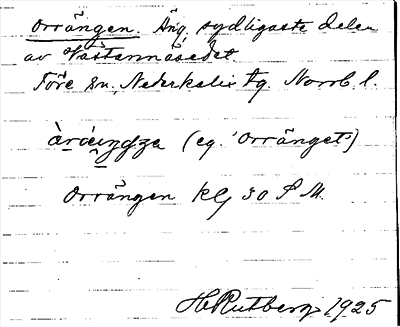 Orrängen. Äng, sydligaste delen
av Västermåsedet.
Töre sn, Nederkalix tg. Norrb. l.
(eg. "Orränget")
Orrängen Klj 30 S M.
H Rutberg 1925